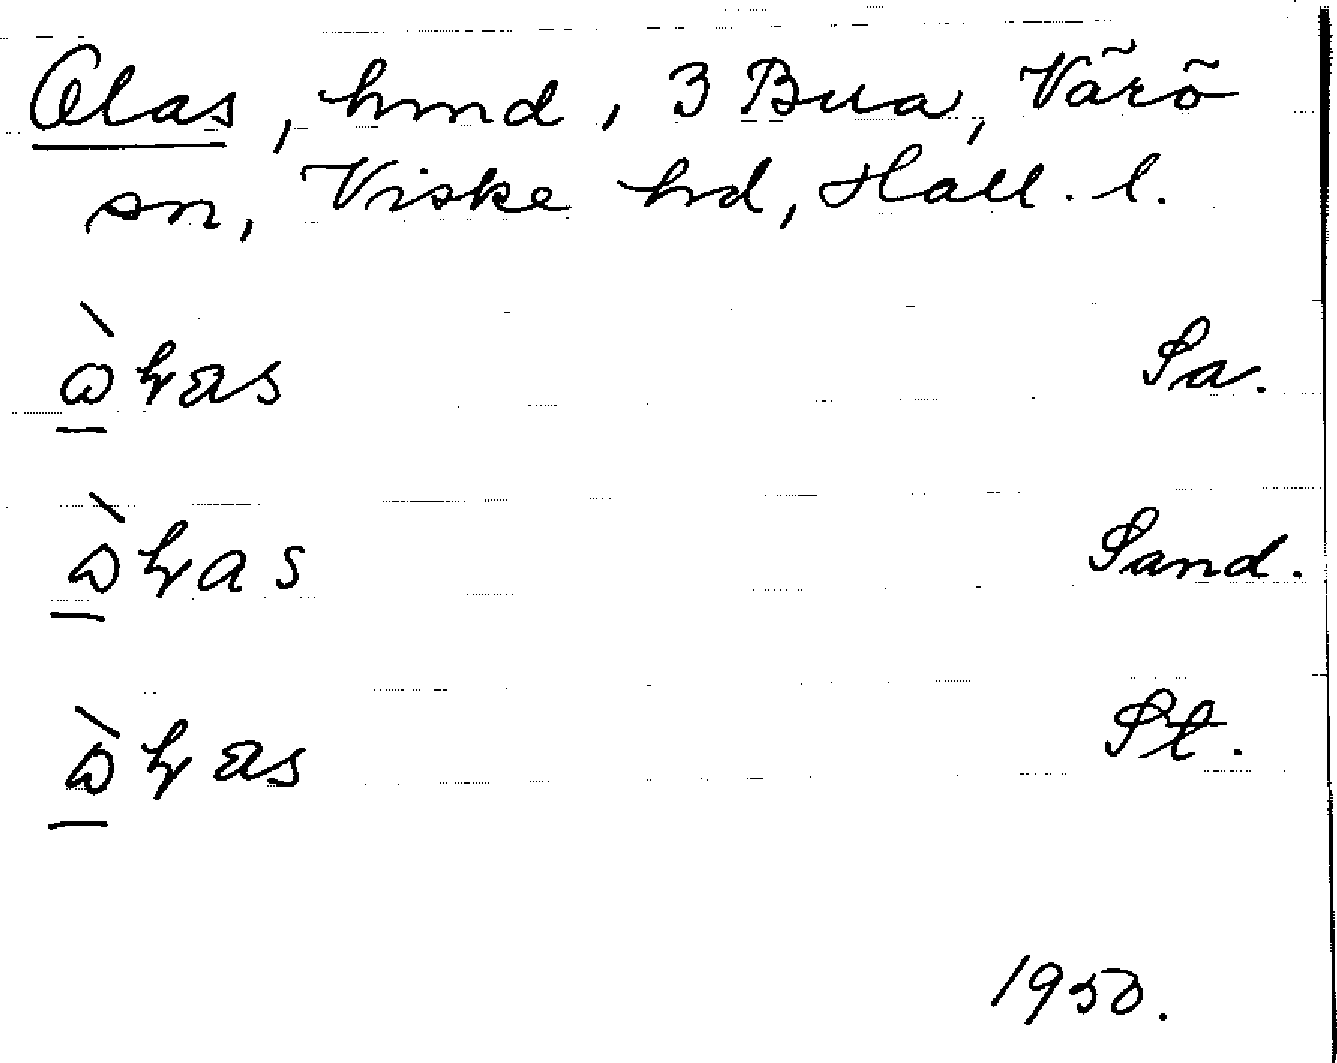 Olas, hmd, 3 Bua, Värö
sn, Viske hd, Hall. l.
Sa.
Sand.
St.
1950.